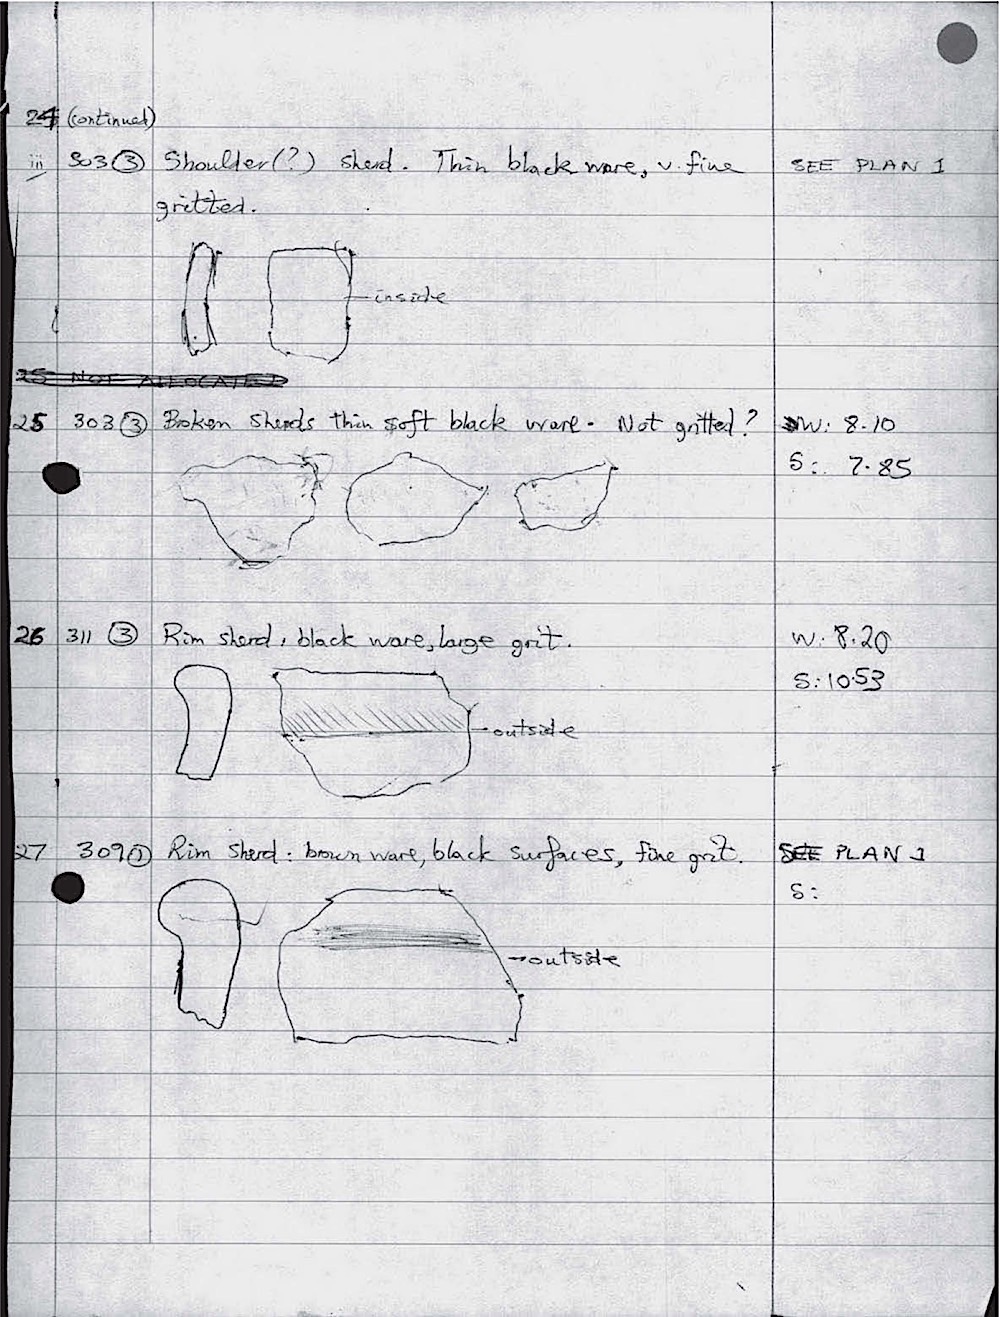 24 (continued)
iii 303 ③ Shoulder(?) sherd. Thin black ware, v. fine SEE PLAN 1
gritted.
inside
25 NOT ALLOCATED
25 303 ③ Broken sherds thin soft black ware. Not gritted? W: 8.10
S: 7.85
26 311 ③ Rim sherd, black ware, large grit. W: 8.20
S: 10.53
outside
27 309 ① Rim sherd: brown ware, black surfaces, fine grit. SEE PLAN 1
S:
outside